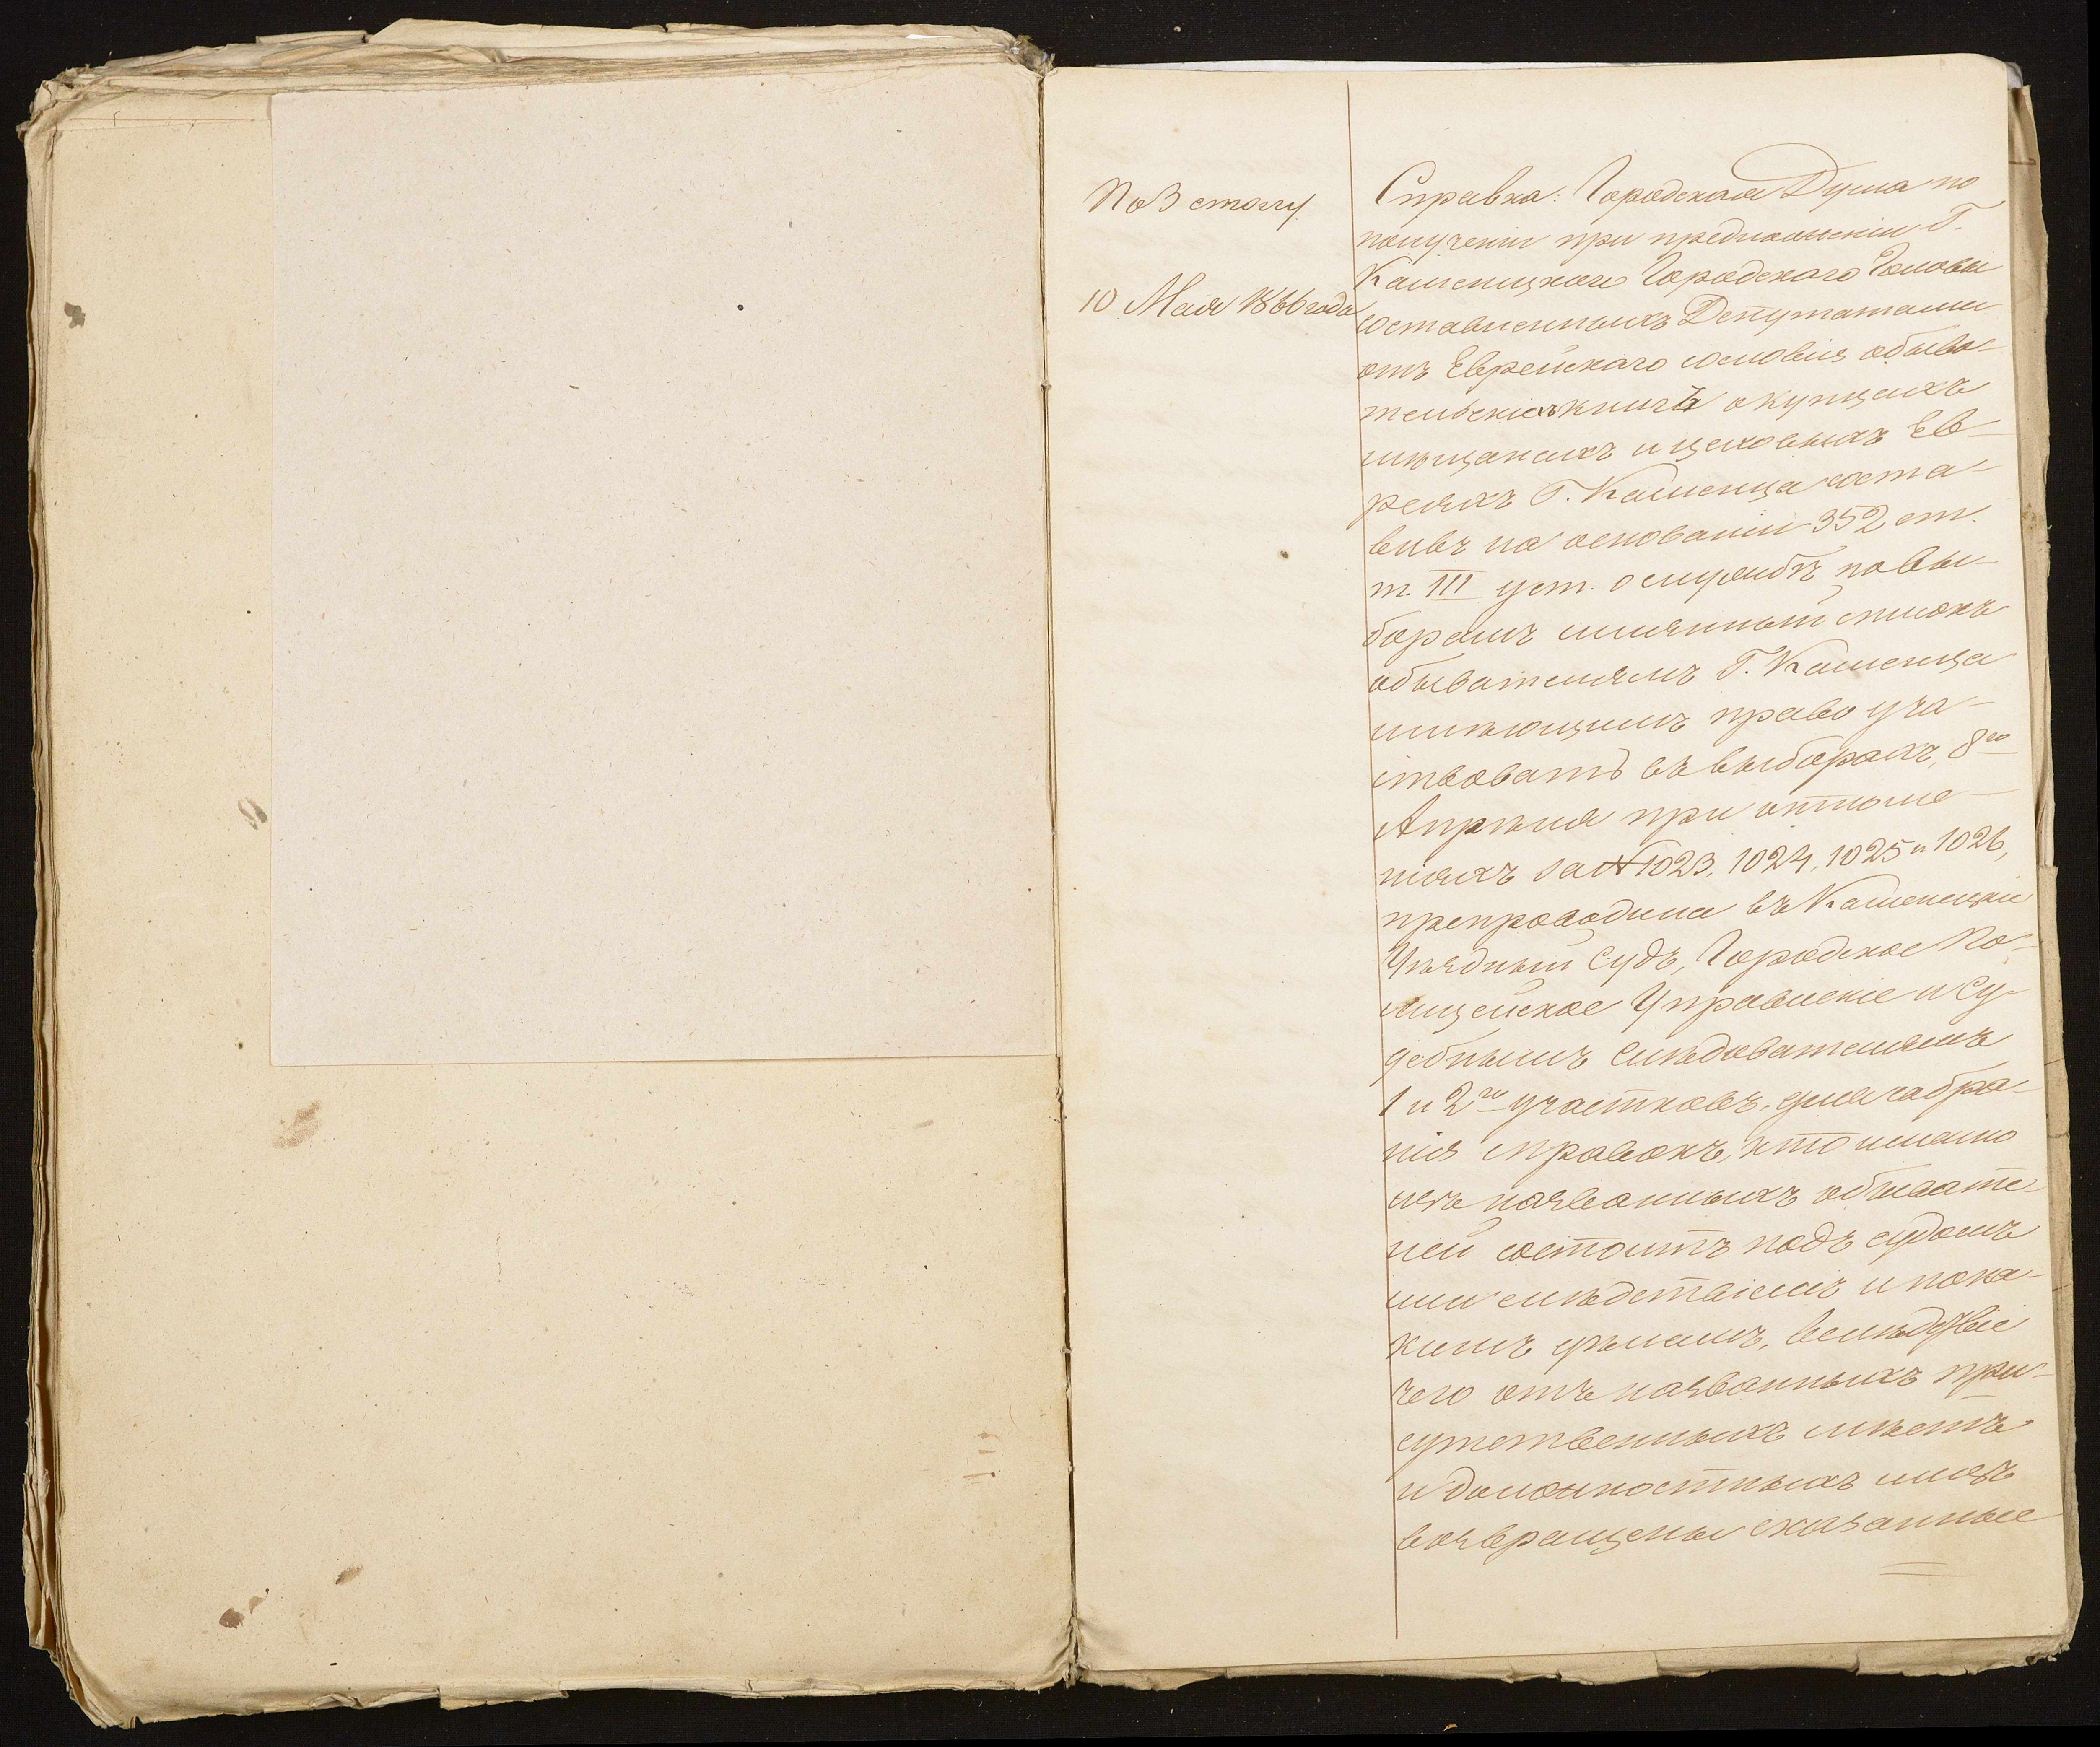 По 3 столу
10 Мая 1866 года
Справка: Городская Дума по
получении при предложении Г.
Каменецкаго Городскаго Головы
составленныхъ Депутатами
отъ Еврейскаго сословія обыва-
тельскихъ книгъ о купцахъ
мѣщанахъ и цеховыхъ Ев-
реяхъ Г. Каменца соста-
вивъ на основаніи 352 ст.
т. III уст. о службѣ по вы-
борамъ имянный списокъ
обывателямъ Г. Каменца
имѣющимъ право уча-
ствовать въ выборахъ, 8го
Апрѣля при отноше-
ніяхъ за № 1023, 1024, 1025 и 1026,
препроводила въ Каменецкій
Уѣздный Судъ, Городское По-
лицейское Управленіе и Су-
дебнымъ Слѣдователямъ
1 и 2го участковъ, для забра-
нія справокъ, кто именно
изъ названныхъ обывате-
лей состоитъ подъ судомъ
или слѣдствіемъ и по ка-
кимъ дѣламъ, вслѣдствіе
чего отъ названныхъ при-
сутственныхъ мѣстъ
и должностныхъ лицъ
возвращены сказанные